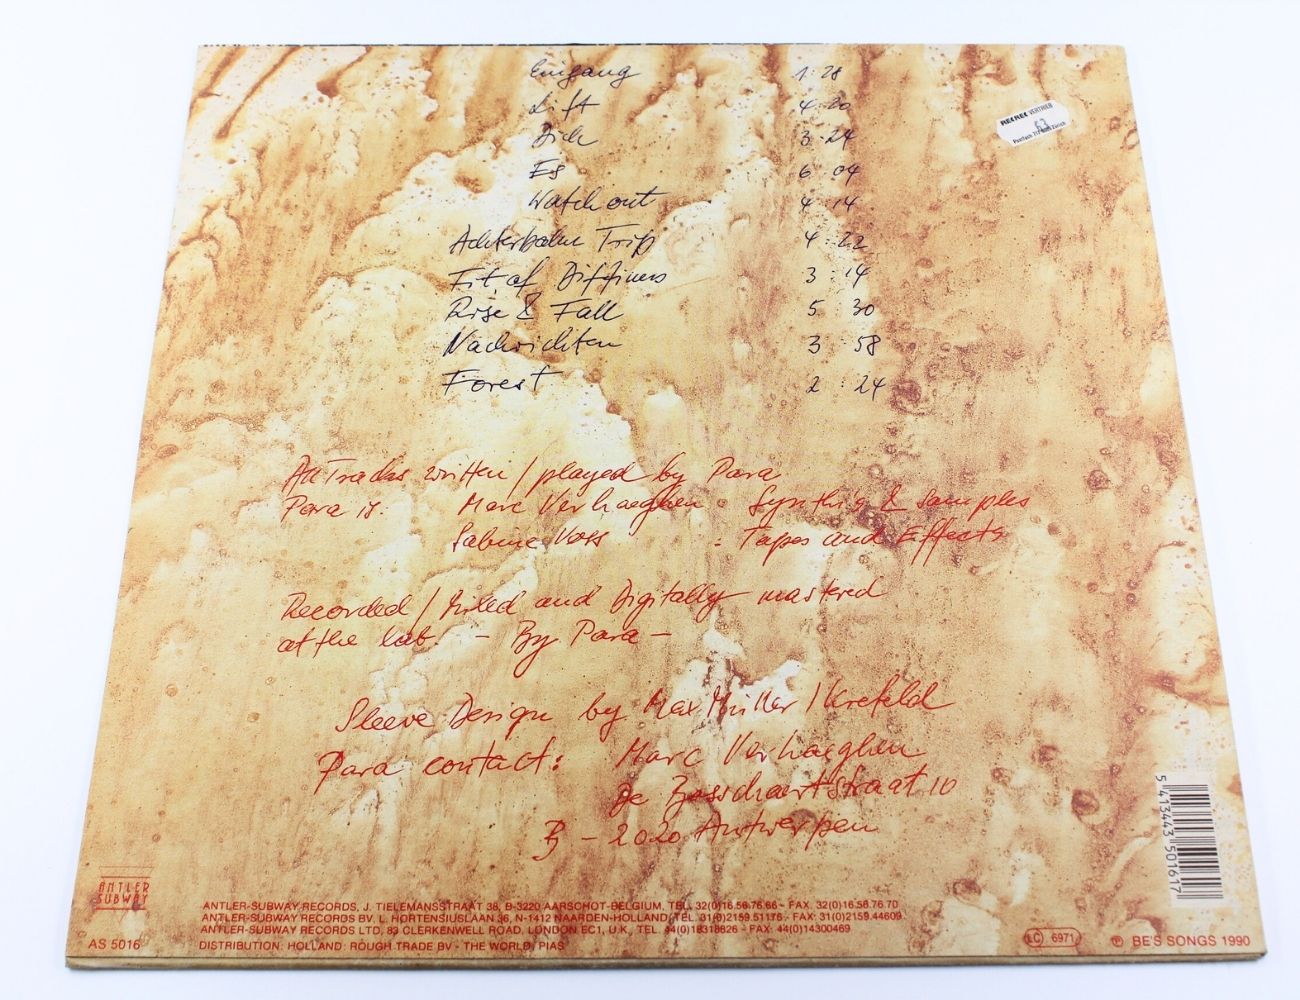 Eingang 1:28
Lift 4:20
Dich 3:24
Es 6:04
Watch out 4:14
Achterbahn Trip 4:22
Fit of Diffiness 3:14
Rise & Fall 5:30
Nachrichten 3:58
Forest 2:24
RECREC VERTRIEB
63
Postfach 717 8026 Zürich
All Tracks written / played by Para
Para is: Marc Verhaeghen : Synth's & samples
Sabine Voss : Tapes and Effects
Recorded / Mixed and Digitally mastered
at the lab. - By Para -
Sleeve Design by Max Müller / Krefeld
Para contact: Marc Verhaeghen
De Bosschaertstraat 10
B - 2020 Antwerpen
5 413443 501617
ANTLER
SUBWAY
ANTLER-SUBWAY RECORDS, J. TIELEMANSSTRAAT 38, B-3220 AARSCHOT-BELGIUM, TEL. 32(0)16.56.76.66 - FAX. 32(0)16.56.76.70
ANTLER-SUBWAY RECORDS BV. L. HORTENSIUSLAAN 36, N-1412 NAARDEN-HOLLAND, TEL. 31(0)2159.51176 - FAX: 31(0)2159.44609
ANTLER-SUBWAY RECORDS LTD, 83 CLERKENWELL ROAD, LONDON EC1, U.K., TEL. 44(0)18318826 - FAX: 44(0)14300469
AS 5016 DISTRIBUTION: HOLLAND: ROUGH TRADE BV - THE WORLD, PIAS
LC 6971 ℗ BE'S SONGS 1990